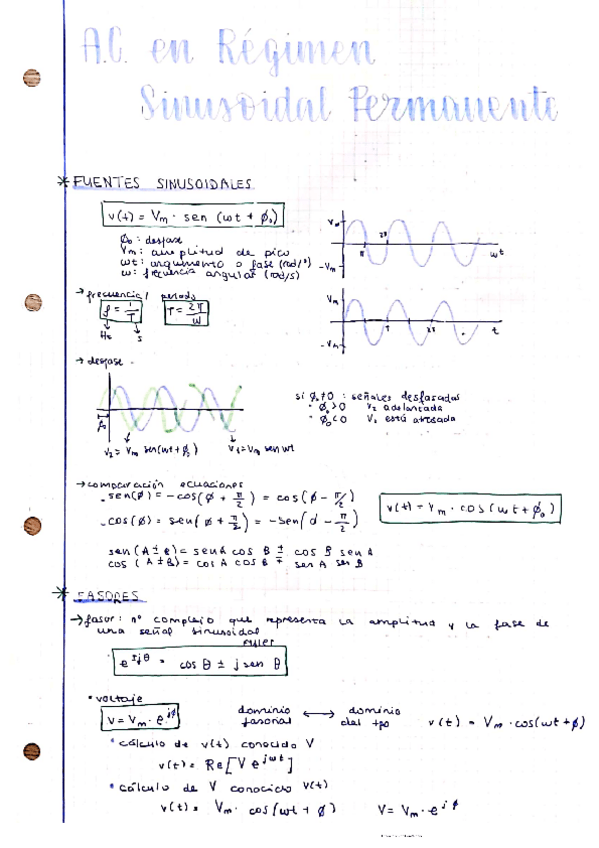 A.C. en Régimen
Sinusoidal Permanente
* FUENTES SINUSOIDALES
v(t) = Vm · sen (wt + ϕ₀)
ϕ₀: desfase
Vm: amplitud de pico
wt: argumento o fase (rad/°)
w: frecuencia angular (rad/s)
Vm
-Vm
π
2π
wt
→ frecuencia / periodo
f = 1/T
T = 2π/w
Hz
s
Vm
-Vm
T
2T
t
→ desfase
ϕ₀
v₂ = Vm sen(wt + ϕ₀)
v₁ = Vm sen wt
si ϕ₀ ≠ 0 : señales desfasadas
• ϕ₀ > 0 v₂ adelantada
• ϕ₀ < 0 v₂ está atrasada
→ comparación ecuaciones
. sen(ϕ) = -cos(ϕ + π/2) = cos(ϕ - π/2)
. cos(ϕ) = sen(ϕ + π/2) = -sen(ϕ - π/2)
v(t) = Vm · cos(wt + ϕ₀)
sen (A ± B) = senA cos B ± cos B sen A
cos (A ± B) = cos A cos B ∓ sen A sen B
* FASORES
→ fasor: nº complejo que representa la amplitud y la fase de
una señal sinusoidal
Euler
e^±jθ = cos θ ± j sen θ
• voltaje
V = Vm · e^jϕ
dominio fasorial ⟷ dominio del tpo
v(t) = Vm · cos(wt + ϕ)
• cálculo de v(t) conocido V
v(t) = Re[V e^jwt]
• cálculo de V conocido v(t)
v(t) = Vm · cos(wt + ϕ) V = Vm · e^jϕ